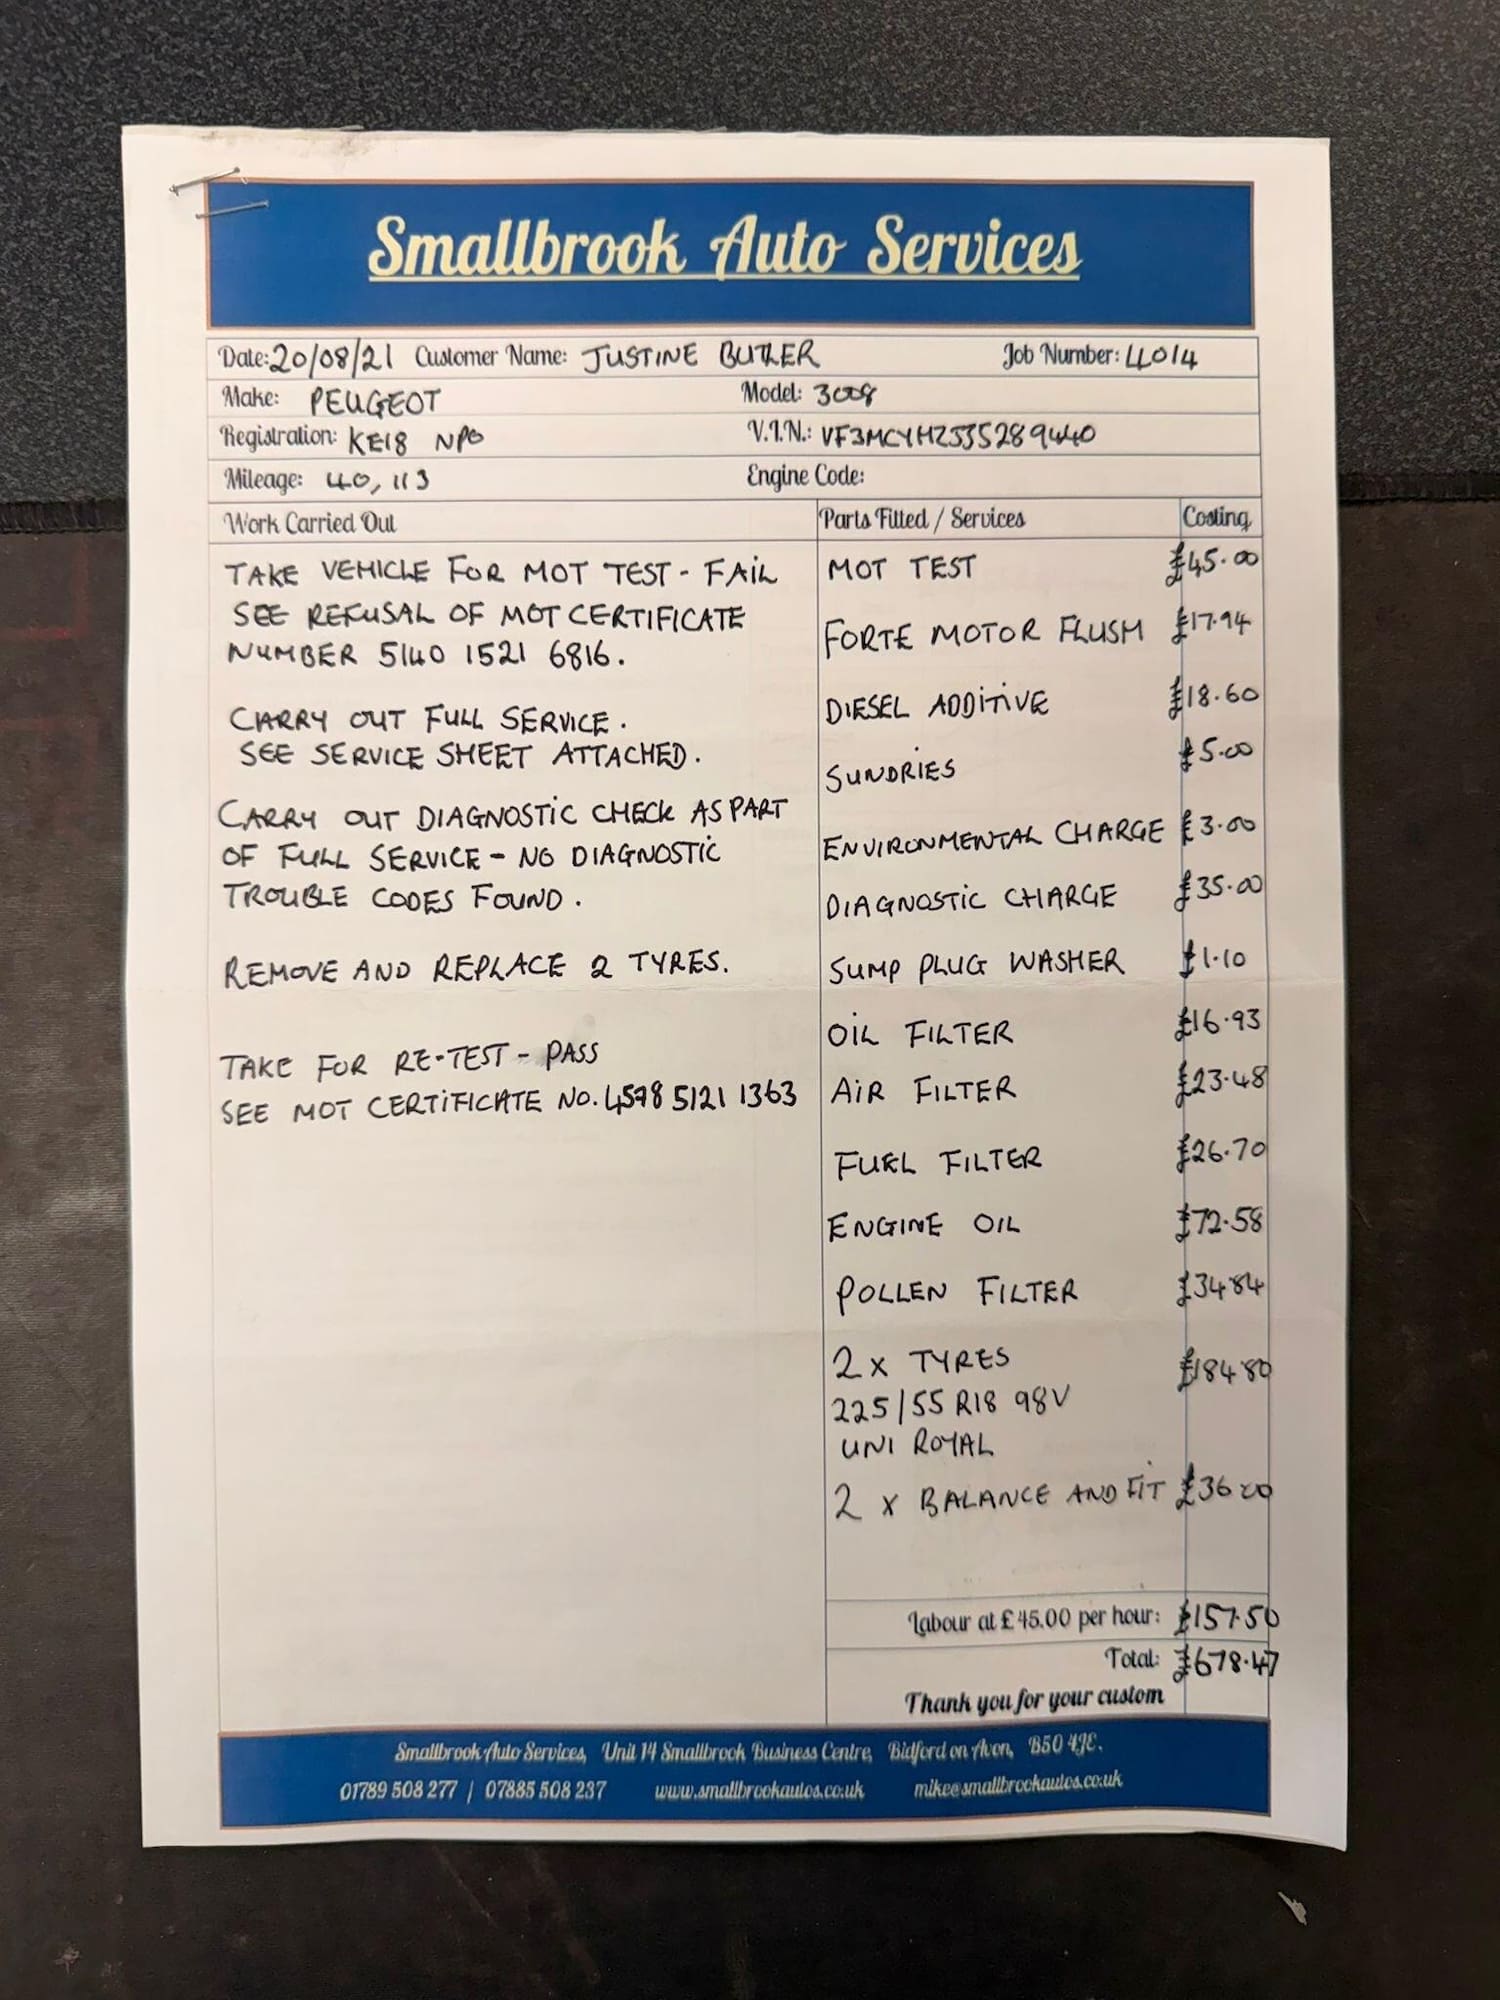 Smallbrook Auto Services
Date: 20/08/21 Customer Name: JUSTINE BUTLER Job Number: 44014
Make: PEUGEOT Model: 3008
Registration: KE18 NPO V.I.N.:
Mileage: 40,113 Engine Code:
Work Carried Out Parts Fitted / Services Costing
TAKE VEHICLE FOR MOT TEST - FAIL
SEE REFUSAL OF MOT CERTIFICATE
NUMBER 5140 1521 6816.
CARRY OUT FULL SERVICE.
SEE SERVICE SHEET ATTACHED.
CARRY OUT DIAGNOSTIC CHECK AS PART
OF FULL SERVICE - NO DIAGNOSTIC
TROUBLE CODES FOUND.
REMOVE AND REPLACE 2 TYRES.
TAKE FOR RE-TEST - PASS
SEE MOT CERTIFICATE NO. 4578 5121 1363
MOT TEST £45.00
FORTE MOTOR FLUSH £17.94
DIESEL ADDITIVE £18.60
SUNDRIES £5.00
ENVIRONMENTAL CHARGE £3.00
DIAGNOSTIC CHARGE £35.00
SUMP PLUG WASHER £1.10
OIL FILTER £16.93
AIR FILTER £23.48
FUEL FILTER £26.70
ENGINE OIL £72.58
POLLEN FILTER £34.84
2 x TYRES £184.80
225/55 R18 98V
UNI ROYAL
2 x BALANCE AND FIT £36.00
Labour at £45.00 per hour: £157.50
Total: £678.47
Thank you for your custom
Smallbrook Auto Services, Unit 14 Smallbrook Business Centre, Bidford on Avon, B50 4JE.
01789 508 277 / 07885 508 237 www.smallbrookautos.co.uk mike@smallbrookautos.co.uk